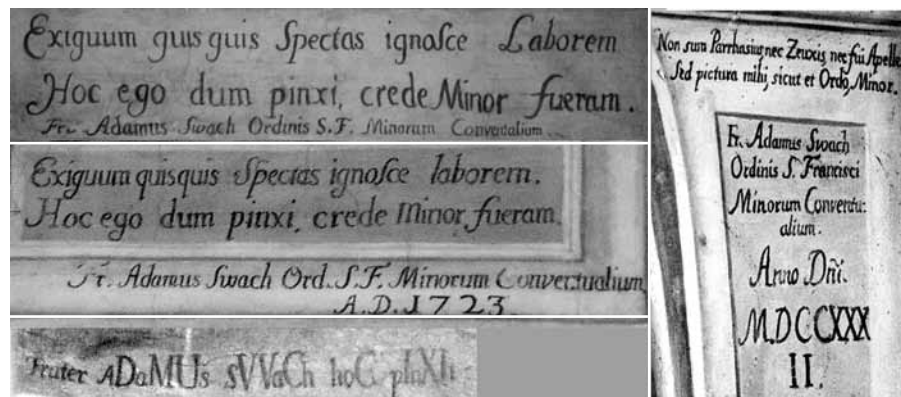 Exiguum quis quis Spectas ignosce Laborem
Hoc ego dum pinxi, crede Minor fueram.
Fr. Adamus Swach Ordinis S. F. Minorum Conventalium.
Exiguum quisquis Spectas ignosce laborem.
Hoc ego dum pinxi, crede Minor fueram.
Fr. Adamus Swach Ord. S. F. Minorum Conventualium
A.D. 1723
Frater ADaMUs sVVaCh hoC pInXIt
Non sum Parrhasius, nec Zeuxis, nec fui Apelle
Sed pictura mihi, sicut et Ordo, Minor.
Fr. Adamus Swach
Ordinis S. Francisci
Minorum Conventu-
alium.
Anno Dñi.
MDCCXXX
II.